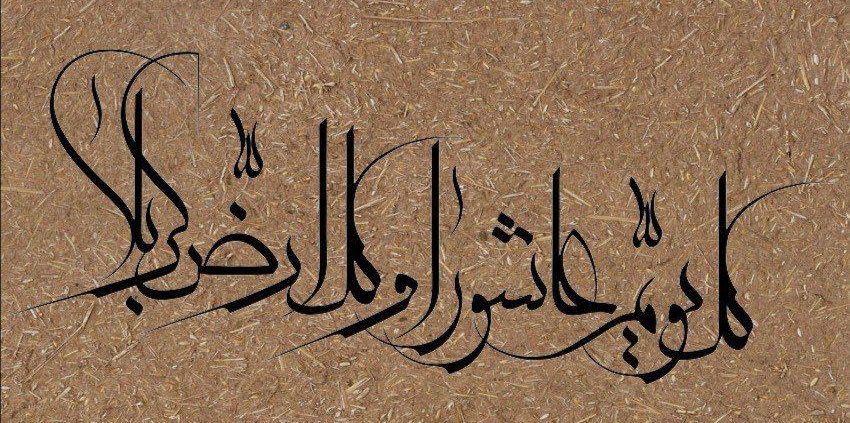 کل یومٍ عاشورا و کل ارضٍ کربلا